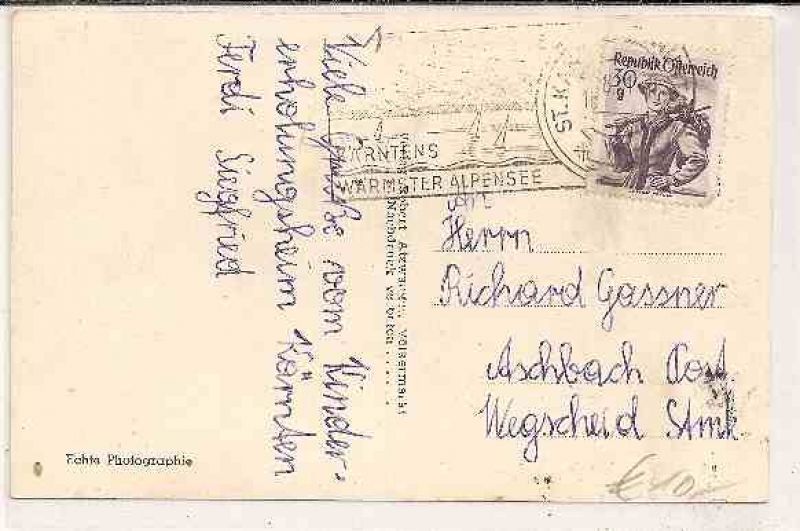 Viele Grüße vom Kinder-
erholungsheim Kärnten
Ferdi Siegfried
KÄRNTENS
WÄRMSTER ALPENSEE
ST.K
Republik Österreich
30
g
Herrn
Richard Gassner
Aschbach Post
Wegscheid Stmk
Nachdruck verboten
Echte Photographie